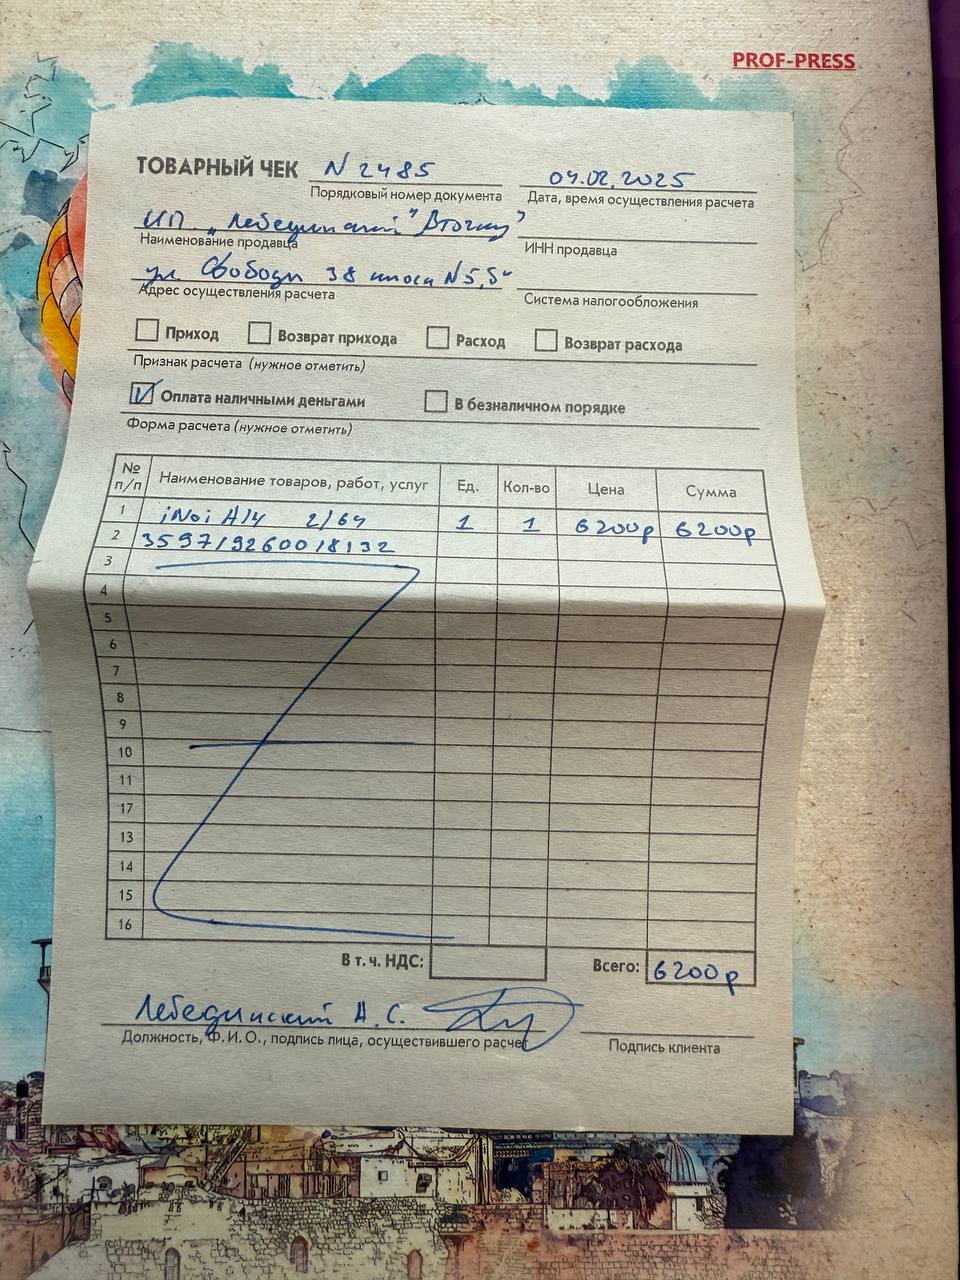 PROF-PRESS
ТОВАРНЫЙ ЧЕК N 2485 04.02.2025
Порядковый номер документа Дата, время осуществления расчета
ИП „Лебединский"
Наименование продавца ИНН продавца
ул. Свободы 38 киоск N5,5"
Адрес осуществления расчета Система налогообложения
Приход Возврат прихода Расход Возврат расхода
Признак расчета (нужное отметить)
Оплата наличными деньгами В безналичном порядке
Форма расчета (нужное отметить)
№ п/п Наименование товаров, работ, услуг Ед. Кол-во Цена Сумма
1 iNoi A14 2/64 1 1 6200р 6200р
2 359719260018132
3
4
5
6
7
8
9
10
11
17
13
14
15
16
В т. ч. НДС: Всего: 6200р
Лебединский А.С.
Должность, Ф.И.О., подпись лица, осуществившего расчет Подпись клиента